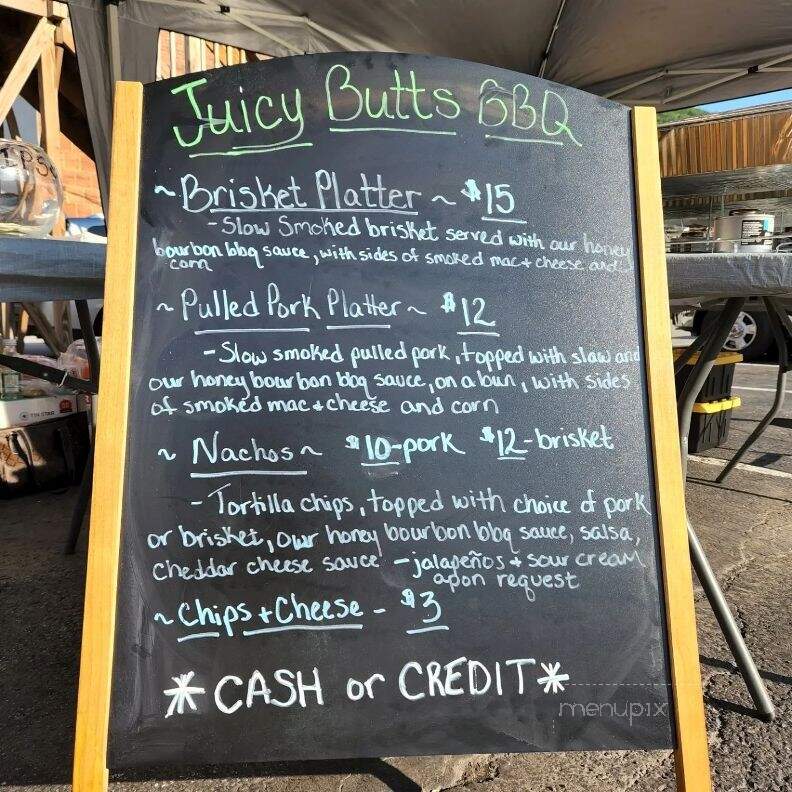 Juicy Butts BBQ
~ Brisket Platter ~ $15
- Slow Smoked brisket served with our honey
bourbon bbq sauce, with sides of smoked mac + cheese and
corn
~ Pulled Pork Platter ~ $12
- Slow smoked pulled pork, topped with slaw and
our honey bourbon bbq sauce, on a bun, with sides
of smoked mac + cheese and corn
~ Nachos ~ $10-pork $12-brisket
- Tortilla chips, topped with choice of pork
or brisket, our honey bourbon bbq sauce, salsa,
cheddar cheese sauce - jalapeños + sour cream
apon request
~ Chips + Cheese - $3
*CASH or CREDIT*
menupix